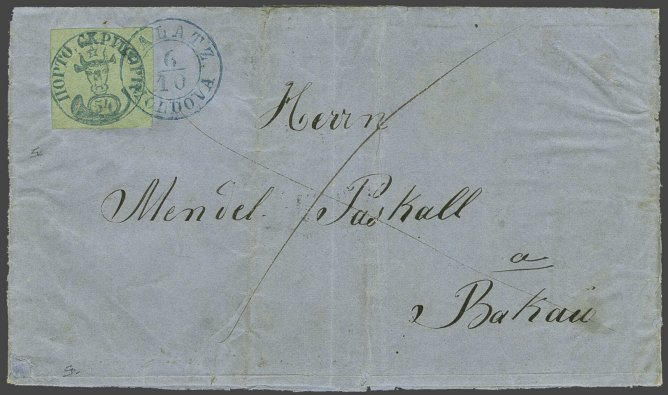 ПОРТО СКРИСОРІ
54
GALATZ
6/10
MOLDOVA
Herrn
Mendel Paskall
a
Bakau